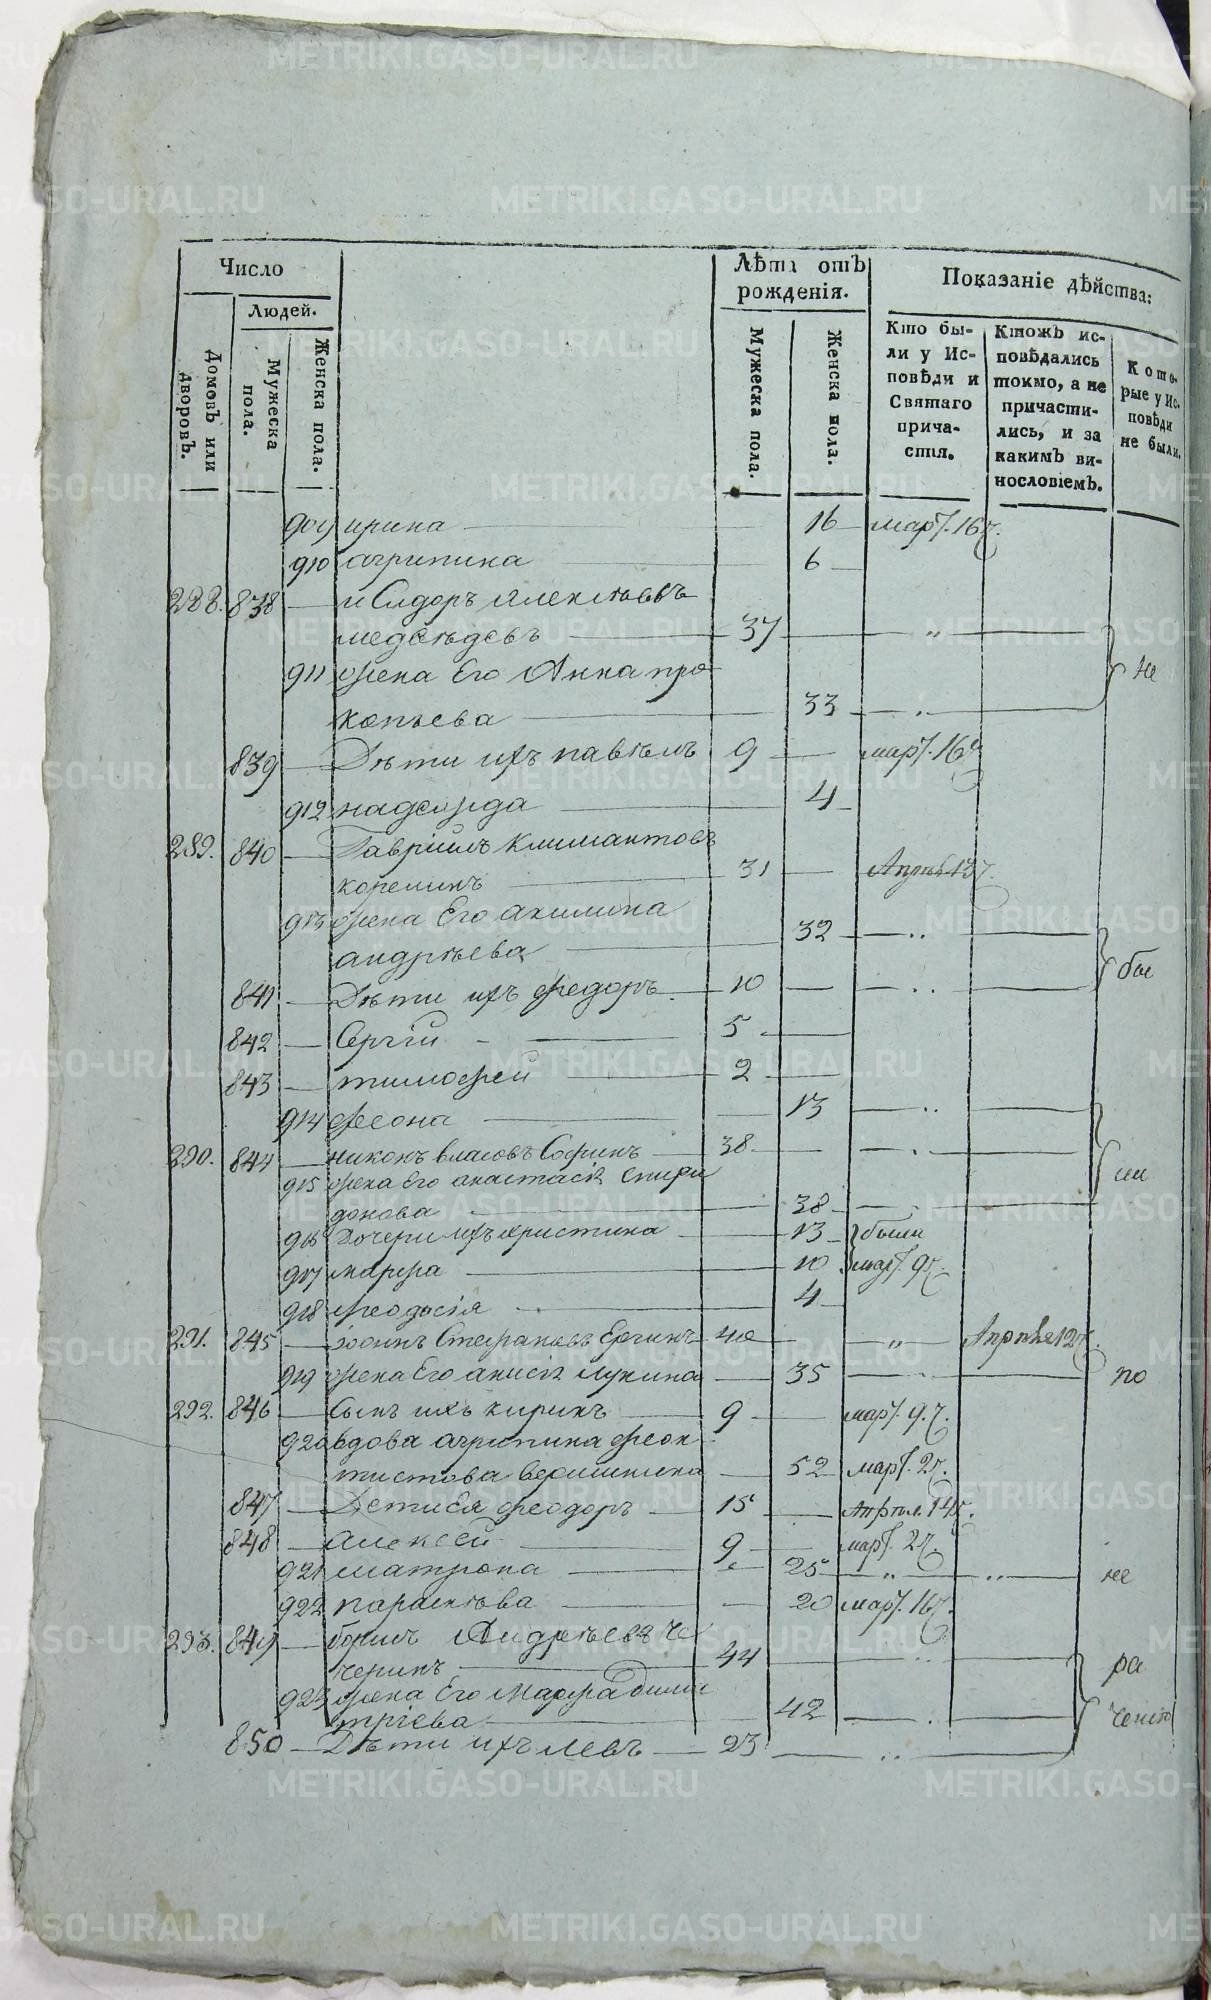 Число
Людей.
Домовъ или дворовъ.
Мужеска пола.
Женска пола.
Лѣта отъ рожденія.
Мужеска пола.
Женска пола.
Показаніе дѣйства:
Кто бы-
ли у Ис-
повѣди и
Святаго
прича-
стія.
Ктожъ ис-
повѣдались
токмо, а не
причасти-
лись, и за
какимъ ви-
нословіемъ.
Кото-
рые у Ис-
повѣди
не были.
909 ирина 16 март. 16
910 агрипина 6
288. 838 исидоръ Алексѣевъ
медвѣдевъ 37
911 жена Его Анна про
копьева 33 не
839 Дѣти ихъ павелъ 9 март. 16
912 надежда 4
289. 840 Гавріилъ Климантовъ
корелинъ 31 Апрѣл. 13
913 жена Его акилина
андрѣева 32
841 Дѣти ихъ федоръ 10 бы
842 Сергій 5
843 тимофей 2
914 феона 13
290. 844 никонъ власовъ Софинъ 38
915 жена Его анастасія спири
донова 38
916 Дочери ихъ христина 13 были
917 марфа 10 март. 9
918 феодосія 4
291. 845 Іоаннъ Стефановъ 40 Апрѣля 12
919 жена Его анисія лукина 35 по
292. 846 Сынъ ихъ кирикъ 9 март. 9
920 вдова агрипина феок
тистова 52 март. 2
847 Дети Ея феодоръ 15 Апрѣл. 14
848 алексей 9 март. 2
921 матрона 25 не
922 параскева 20 март. 16
293. 849 борисъ Андрѣевъ Че
черинъ 44 ра
923 жена Его Марфа дими
тріева 42
850 Дѣти ихъ левъ 23
METRIKI.GASO-URAL.RU